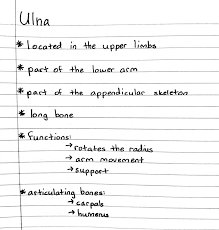 Ulna
* Located in the upper limbs
* part of the lower arm
* part of the appendicular skeleton
* long bone
* functions:
→ rotates the radius
→ arm movement
→ support
* articulating bones:
→ carpals
→ humerus